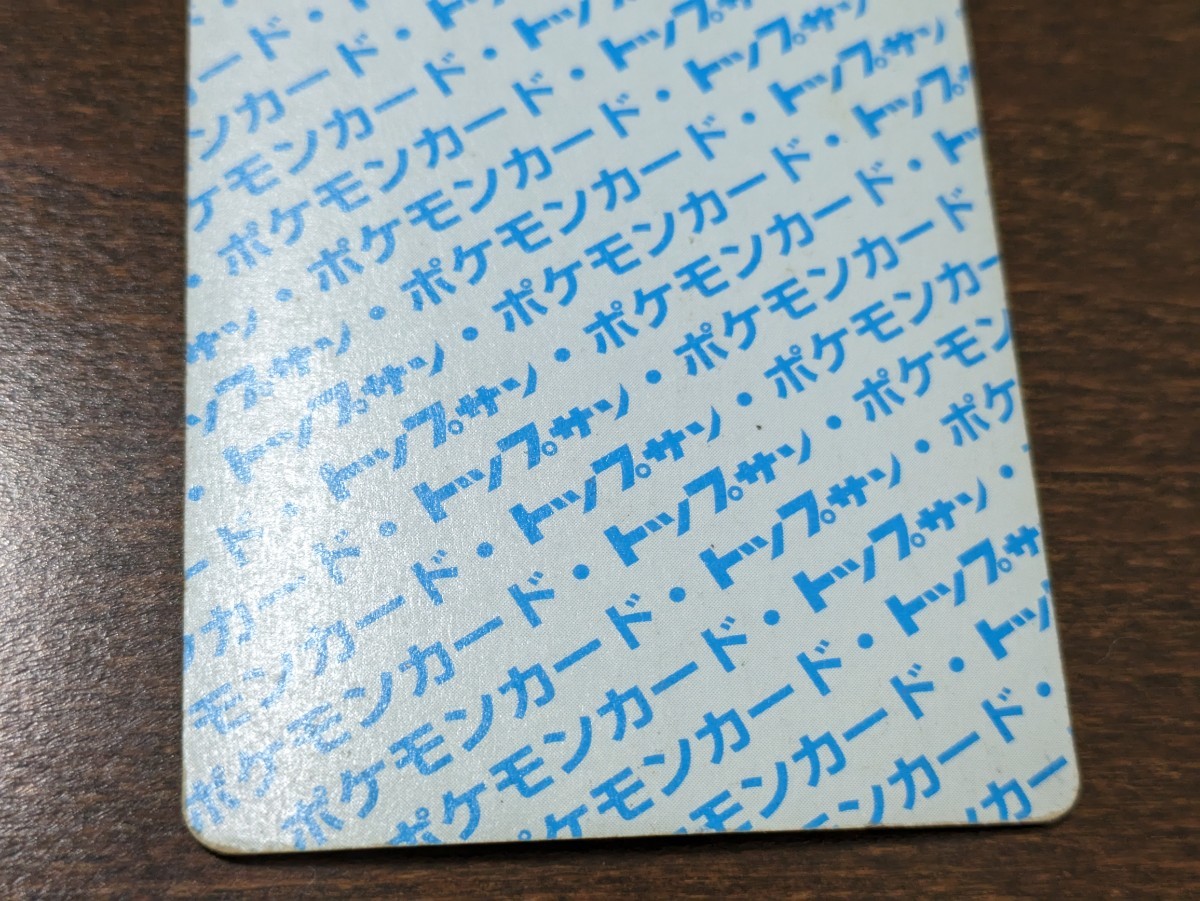 ード・
ンカード・ト
ケモンカード・トッ
・ポケモンカード・トップ
サン・ポケモンカード・トップサ
ップサン・ポケモンカード・トップサン
・トップサン・ポケモンカード・トップ
ード・トップサン・ポケモンカード・ト
ンカード・トップサン・ポケモンカード
モンカード・トップサン・ポケモンカー
ポケモンカード・トップサン・ポケモン
ポケモンカード・トップサン・ポケ
ポケモンカード・トップサン・
ケモンカード・トップサ
モンカード・トッ
ンカード・
カー